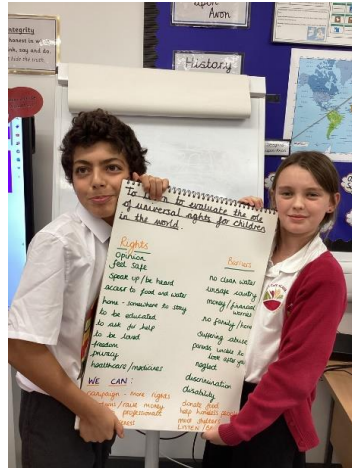 upon
Avon
Integrity
History
To learn to evaluate the role
of universal rights for children
in the world.
Rights
opinion
feel safe
speak up/be heard
access to food and water
home - somewhere to stay
to be educated
to ask for help
to be loved
freedom
privacy
healthcare/medicines
Barriers
no clean water
unsafe country
money/financial
worries
no family/home
suffering abuse
parents unable to
look after you
neglect
discrimination
disability
WE CAN:
campaign - more rights
raise money
donate food
help homeless people